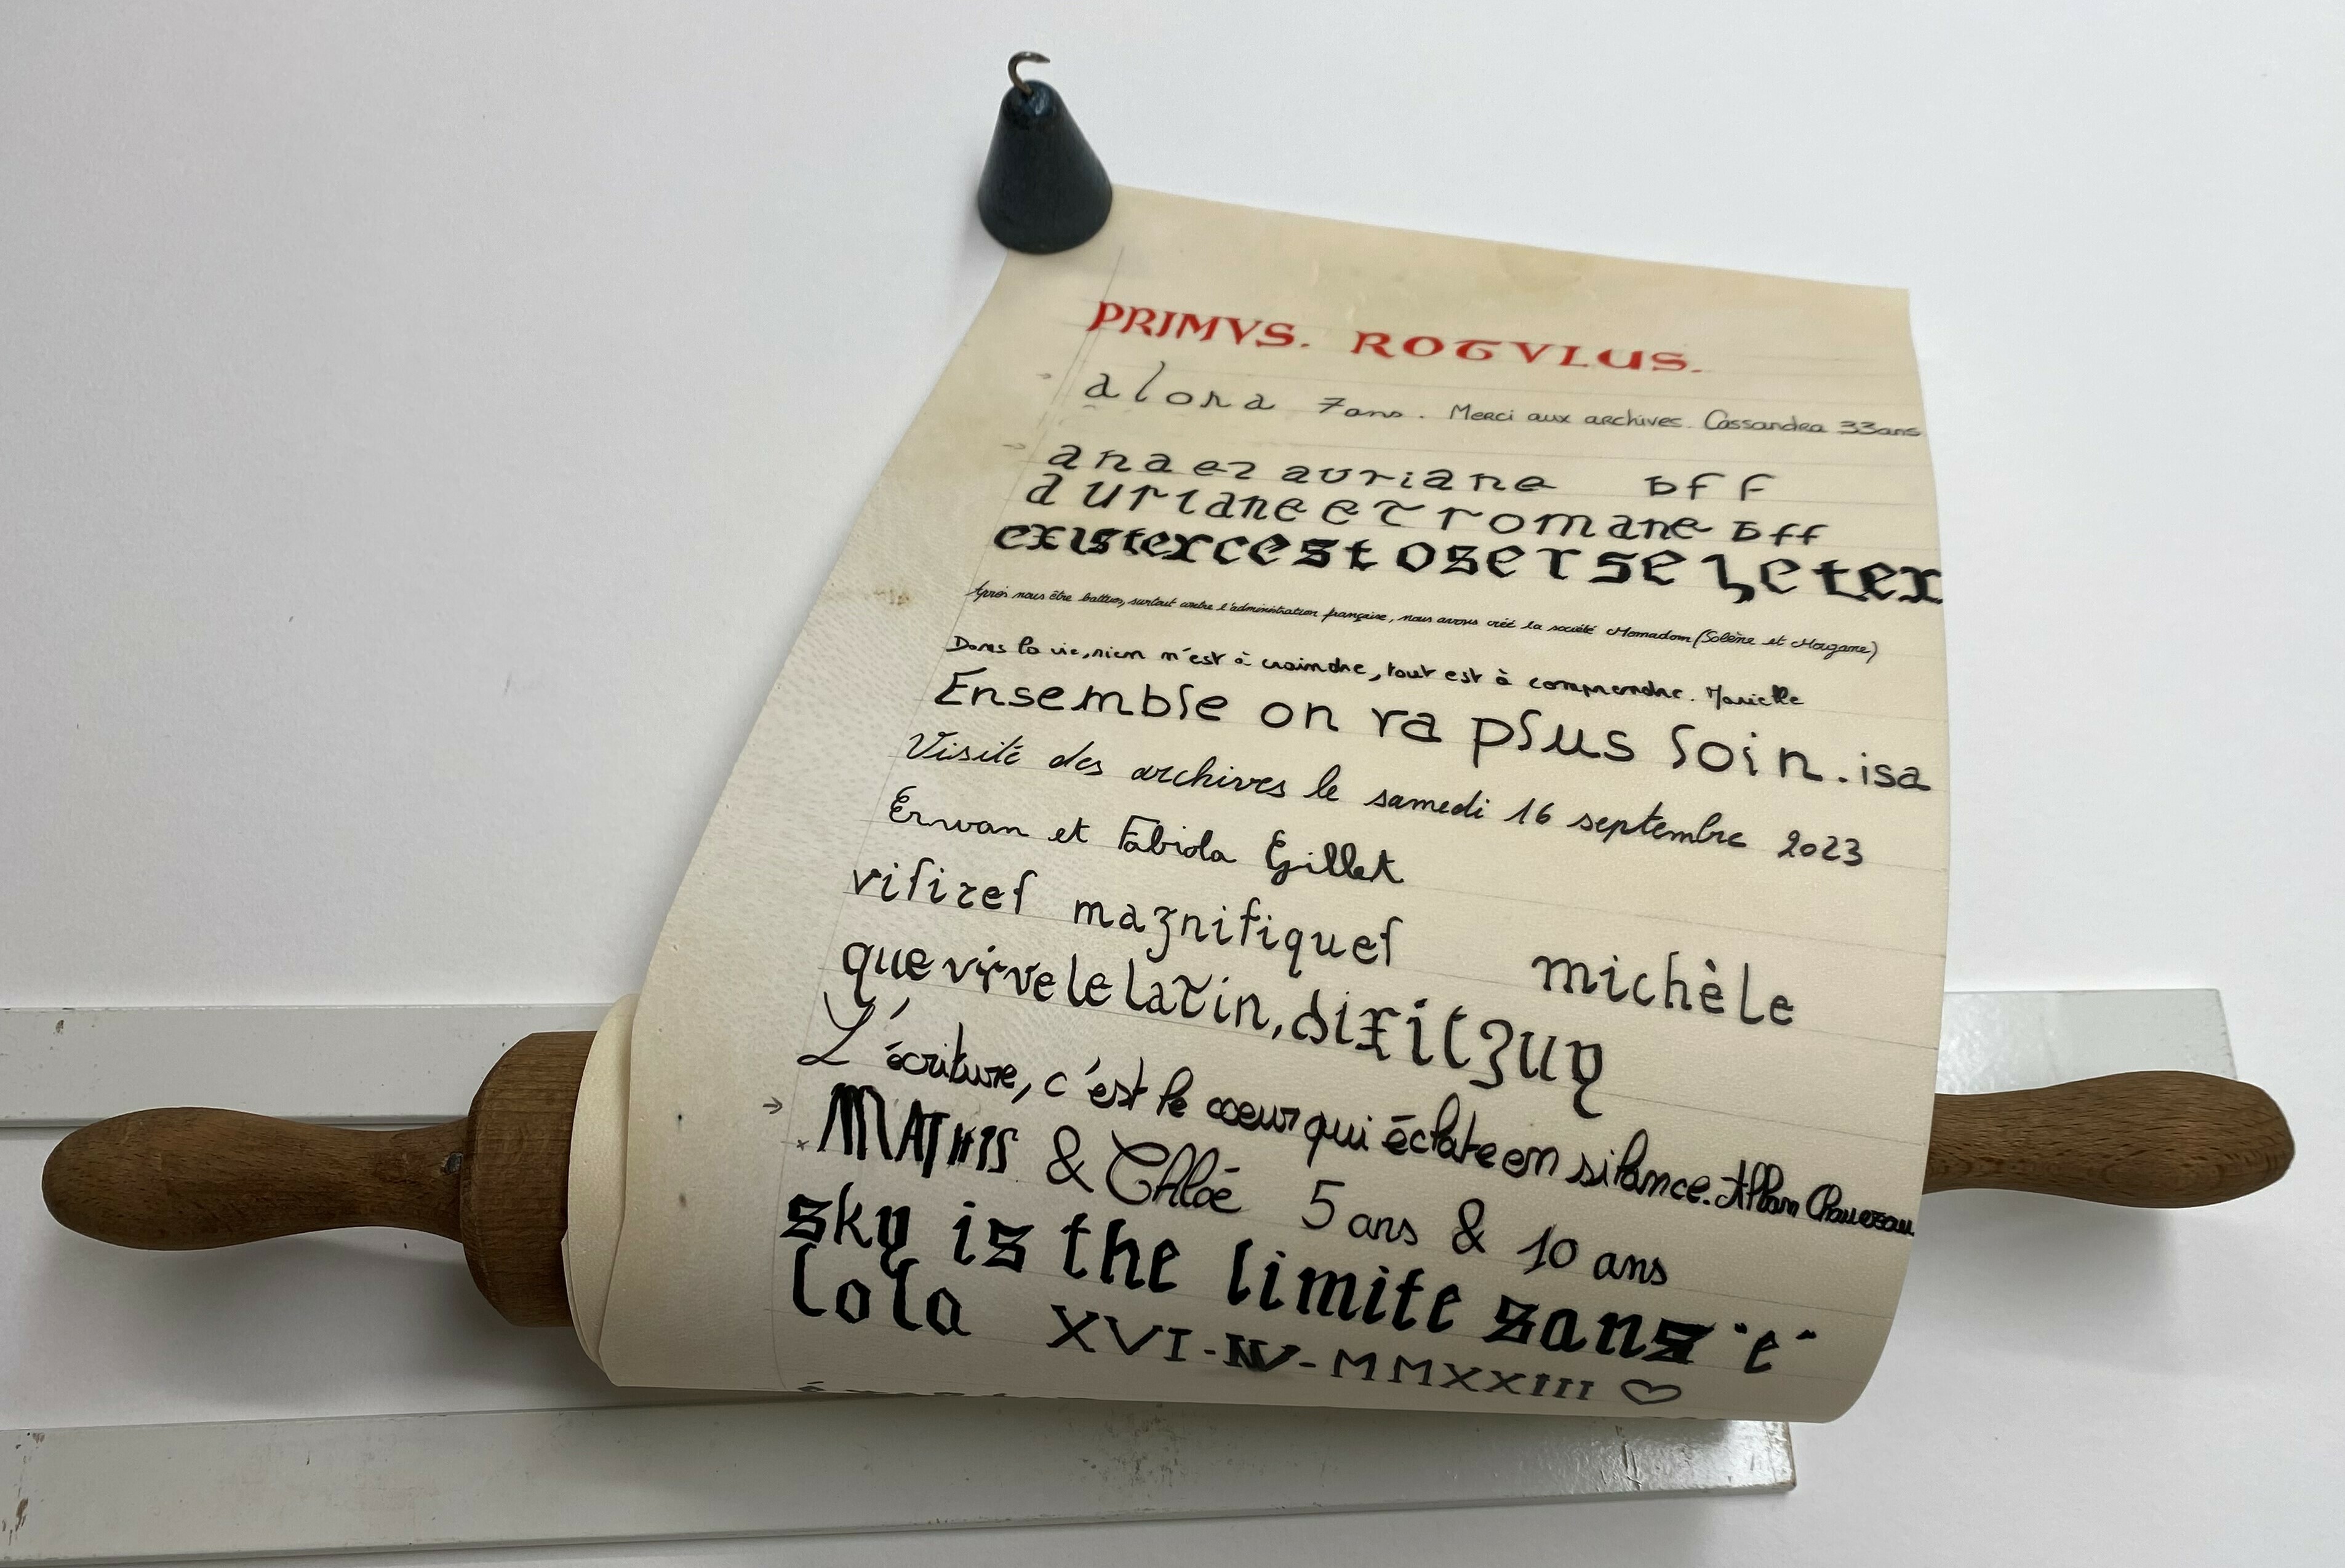 PRIMVS. ROTVLUS.
alora 7ans. Merci aux archives. Cassandra 33ans
anaez auriane bff
auriane et romane bff
existercestoserse Jeter
Après nous être battues, surtout contre l'administration française, nous avons créé la société Momadom (Solène et Morgane)
Dans la vie, rien n'est à craindre, tout est à comprendre. Marielle
Ensemble on va plus loin. isa
Visite des archives le samedi 16 septembre 2023
Erwan et Fabiola Gillet
visites magnifiques michèle
que vive le latin, dixit guy
L'écriture, c'est le cœur qui éclate en silence. Alban
MATHIS & Chloé 5 ans & 10 ans
sky is the limite sans "e"
lola XVI-IV-MMXXIII ♡